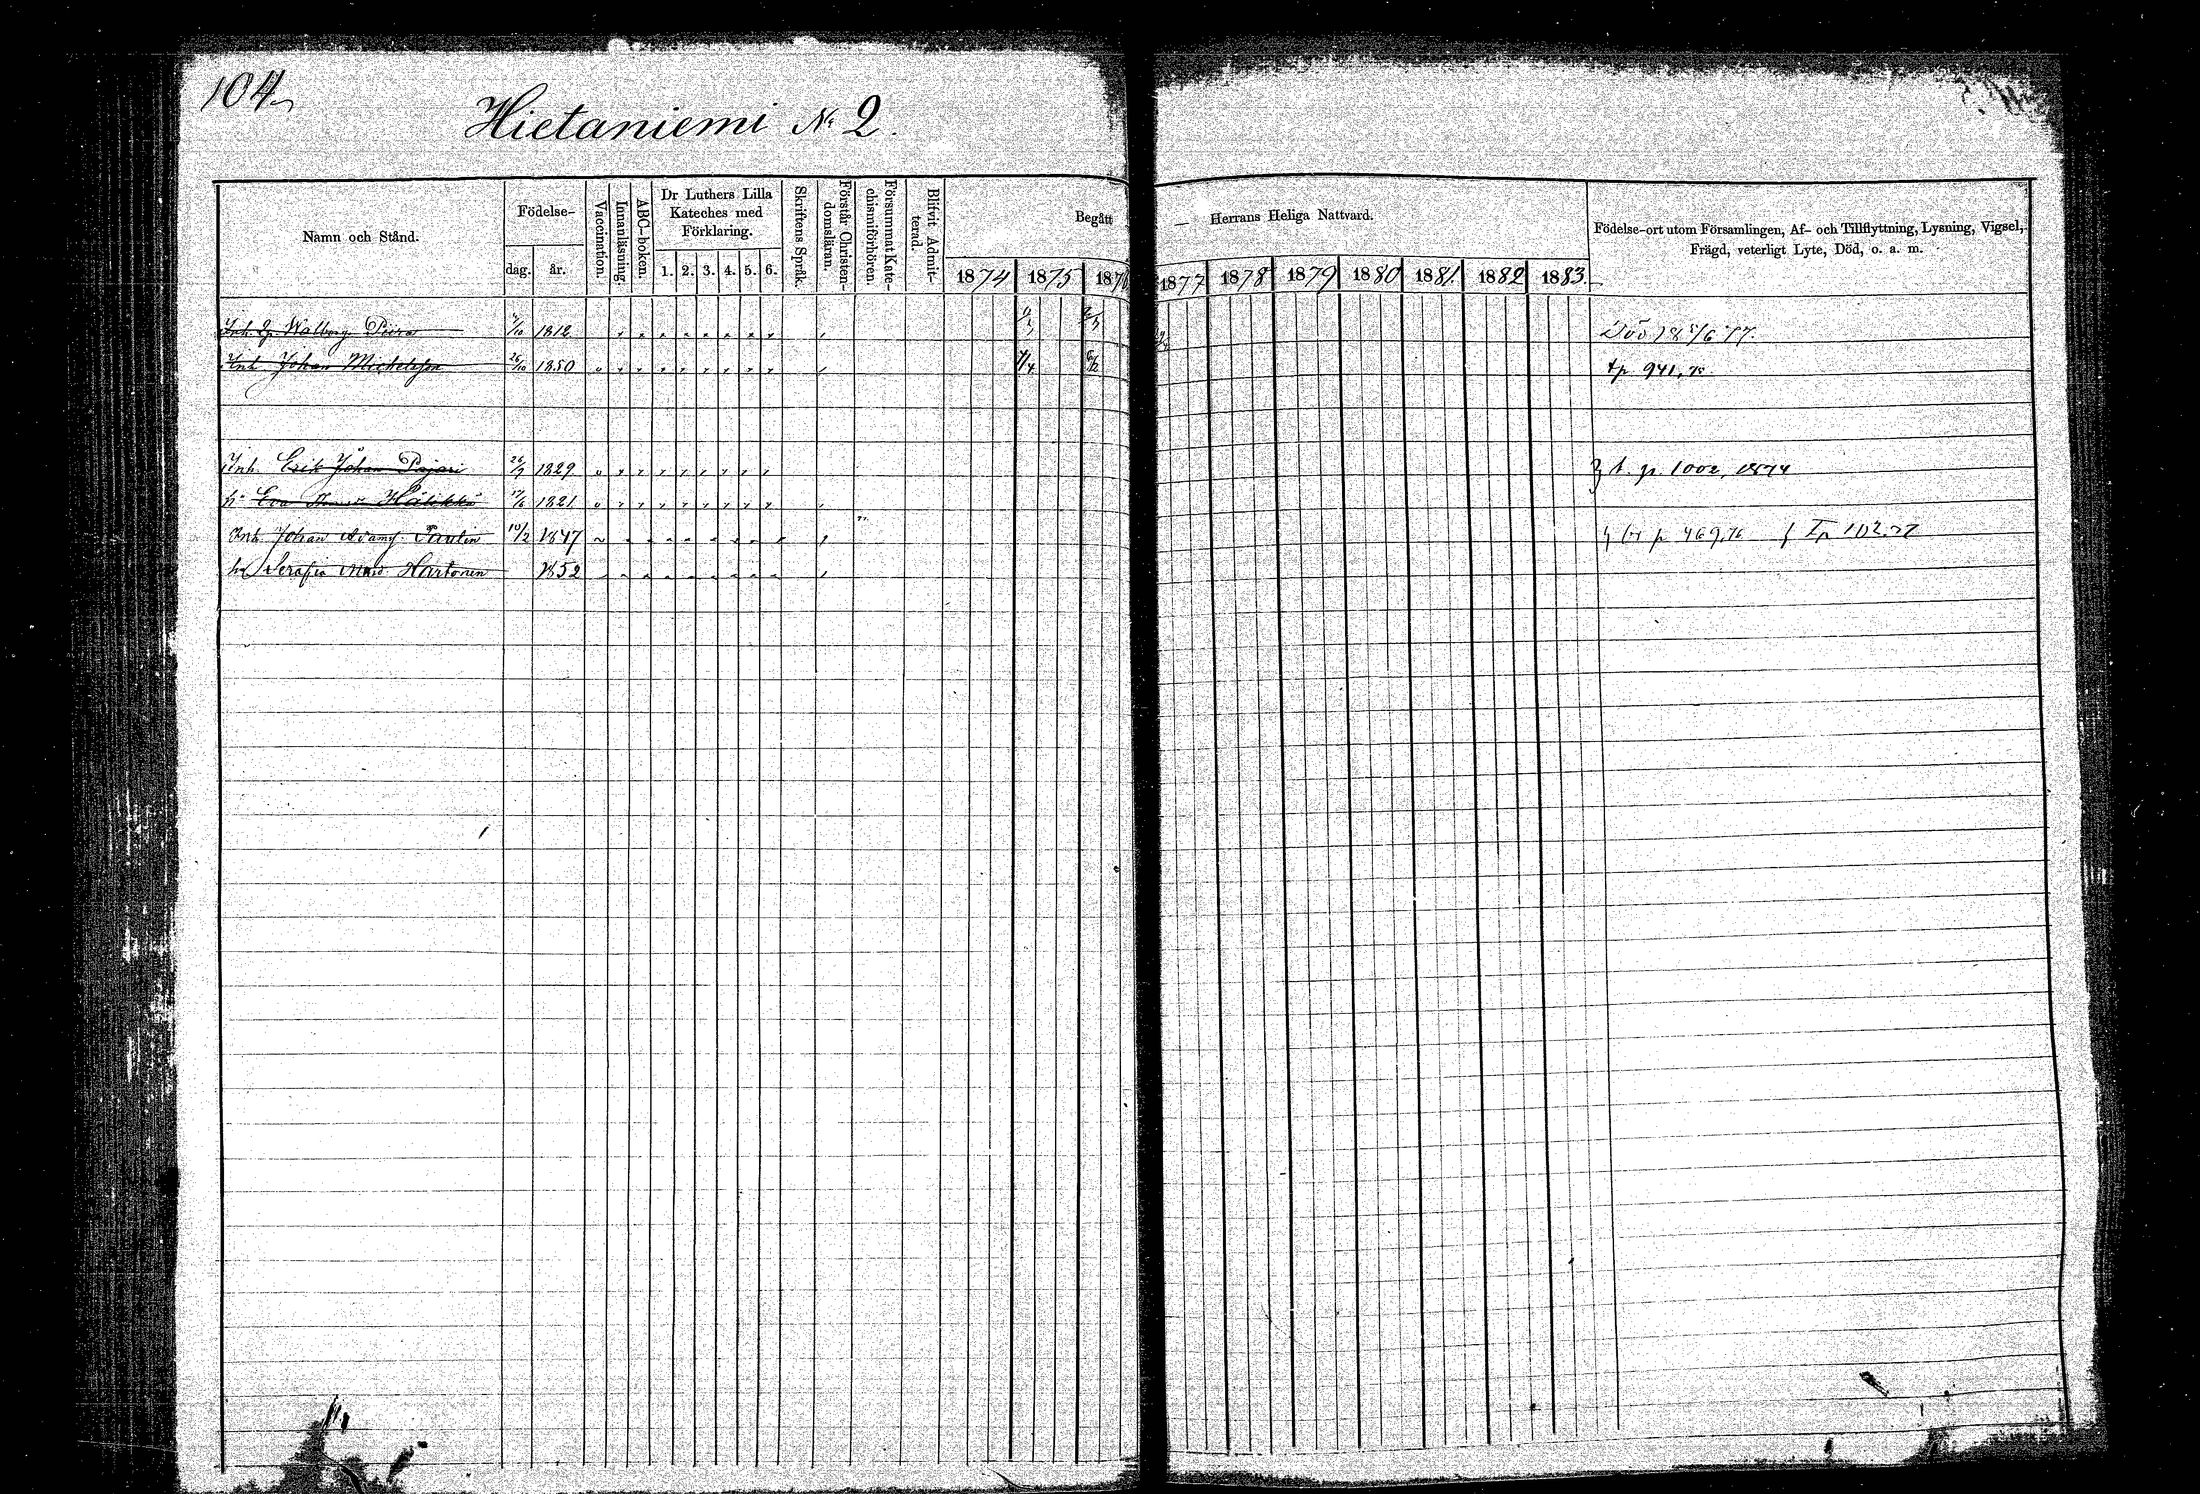 104
Hietaniemi No 2.
Namn och Stånd.
Födelse-
dag. år.
Vaccination.
Innanläsning.
ABC-boken.
Dr Luthers Lilla Kateches med Förklaring.
1. 2. 3. 4. 5. 6.
Skriftens Språk.
Förstår Christendomsläran.
Försummat Katechismiförhören.
Blifvit Admitterad.
Begått — Herrans Heliga Nattvard.
1874 1875 1876 1877 1878 1879 1880 1881. 1882 1883.
Födelse-ort utom Församlingen, Af- och Tillflyttning, Lysning, Vigsel, Frägd, veterligt Lyte, Död, o. a. m.
Inh. Walborg 1812 Död
Inh. Johan Michelsson 26/10 1850 tp 941,
Inh. Erik Johan Pajari 26/7 1829 t. p. 1002, 1874
Eva 17/6 1821
Inh. Johan Paulin 10/2 1847 p 469,76
Serafia Hartonen 1852